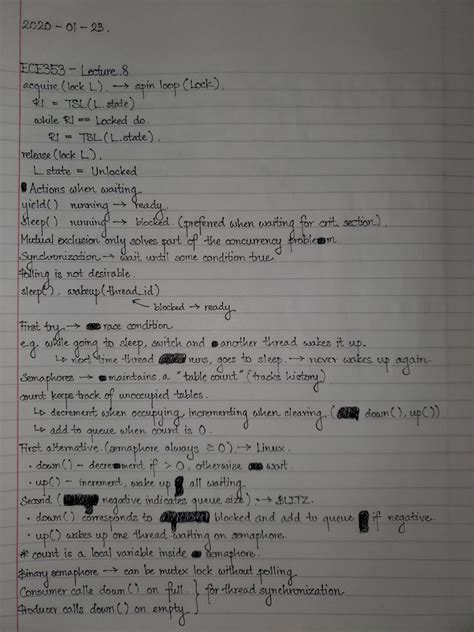 2020-01-23.
ECE353 - Lecture 8
acquire (lock L). → spin loop (Lock).
R1 = TSL (L.state)
while R1 == Locked do.
R1 = TSL (L.state).
release (lock L).
L.state = Unlocked
Actions when waiting
yield() running → ready.
sleep() running → blocked (preferred when waiting for crit. section).
Mutual exclusion only solves part of the concurrency problem.
Synchronization → wait until some condition true.
Polling is not desirable.
sleep(), wakeup(thread_id)
blocked → ready.
First try → race condition
e.g. while going to sleep, switch and another thread wakes it up.
↳ next time thread runs, goes to sleep. → never wakes up again.
Semaphores → maintains a "table count" (tracks history)
count keeps track of unoccupied tables.
↳ decrement when occupying, incrementing when clearing. (down(), up())
↳ add to queue when count is 0.
First alternative (semaphore always ≥ 0). → Linux.
• down() - decrement if > 0, otherwise wait.
• up() - increment, wake up all waiting.
Second (negative indicates queue size) → BLITZ.
• down() corresponds to blocked and add to queue if negative.
• up() wakes up one thread waiting on semaphore.
* count is a local variable inside semaphore.
Binary semaphore → can be mutex lock without polling.
Consumer calls down() on full. } for thread synchronization.
Producer calls down() on empty.